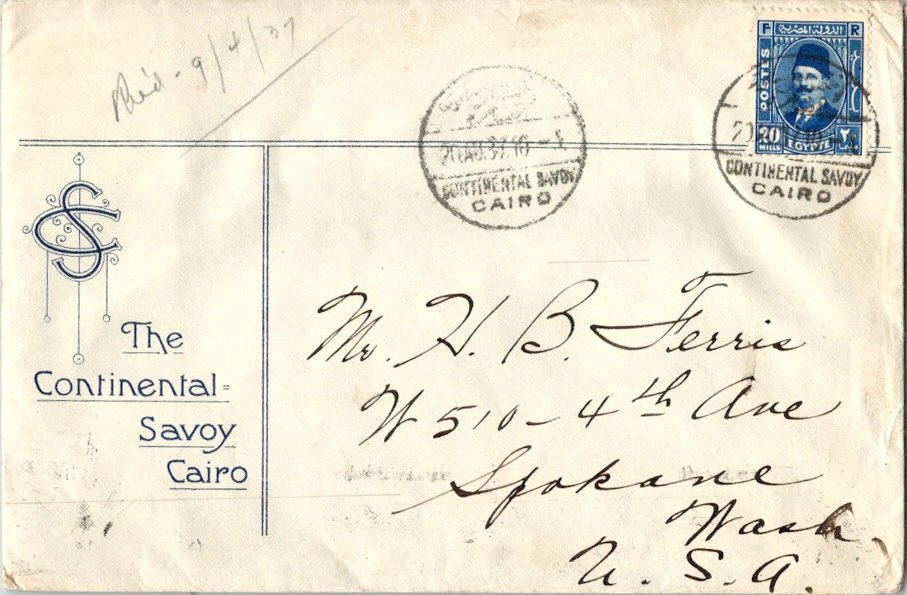 Rec'd - 9/4/37
F R
الدولة المصرية
POSTES
20
MILLS
EGYPTE
٢٠
20 AU.37.10 -
CONTINENTAL SAVOY
CAIRO
CONTINENTAL SAVOY
CAIRO
CS
The
Continental=
Savoy
Cairo
Mr. H. B. Ferris
W 510 - 4th Ave
Spokane
Wash.
U. S. A.